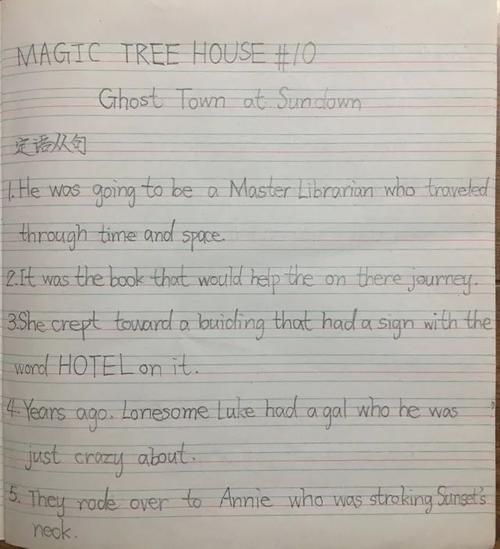 MAGIC TREE HOUSE #10
Ghost Town at Sundown
定语从句
1. He was going to be a Master Librarian who traveled
through time and space.
2. It was the book that would help the on there journey.
3. She crept toward a buiding that had a sign with the
word HOTEL on it.
4. Years ago. Lonesome Luke had a gal who he was
just crazy about.
5. They rode over to Annie who was stroking Sunset's
neck.